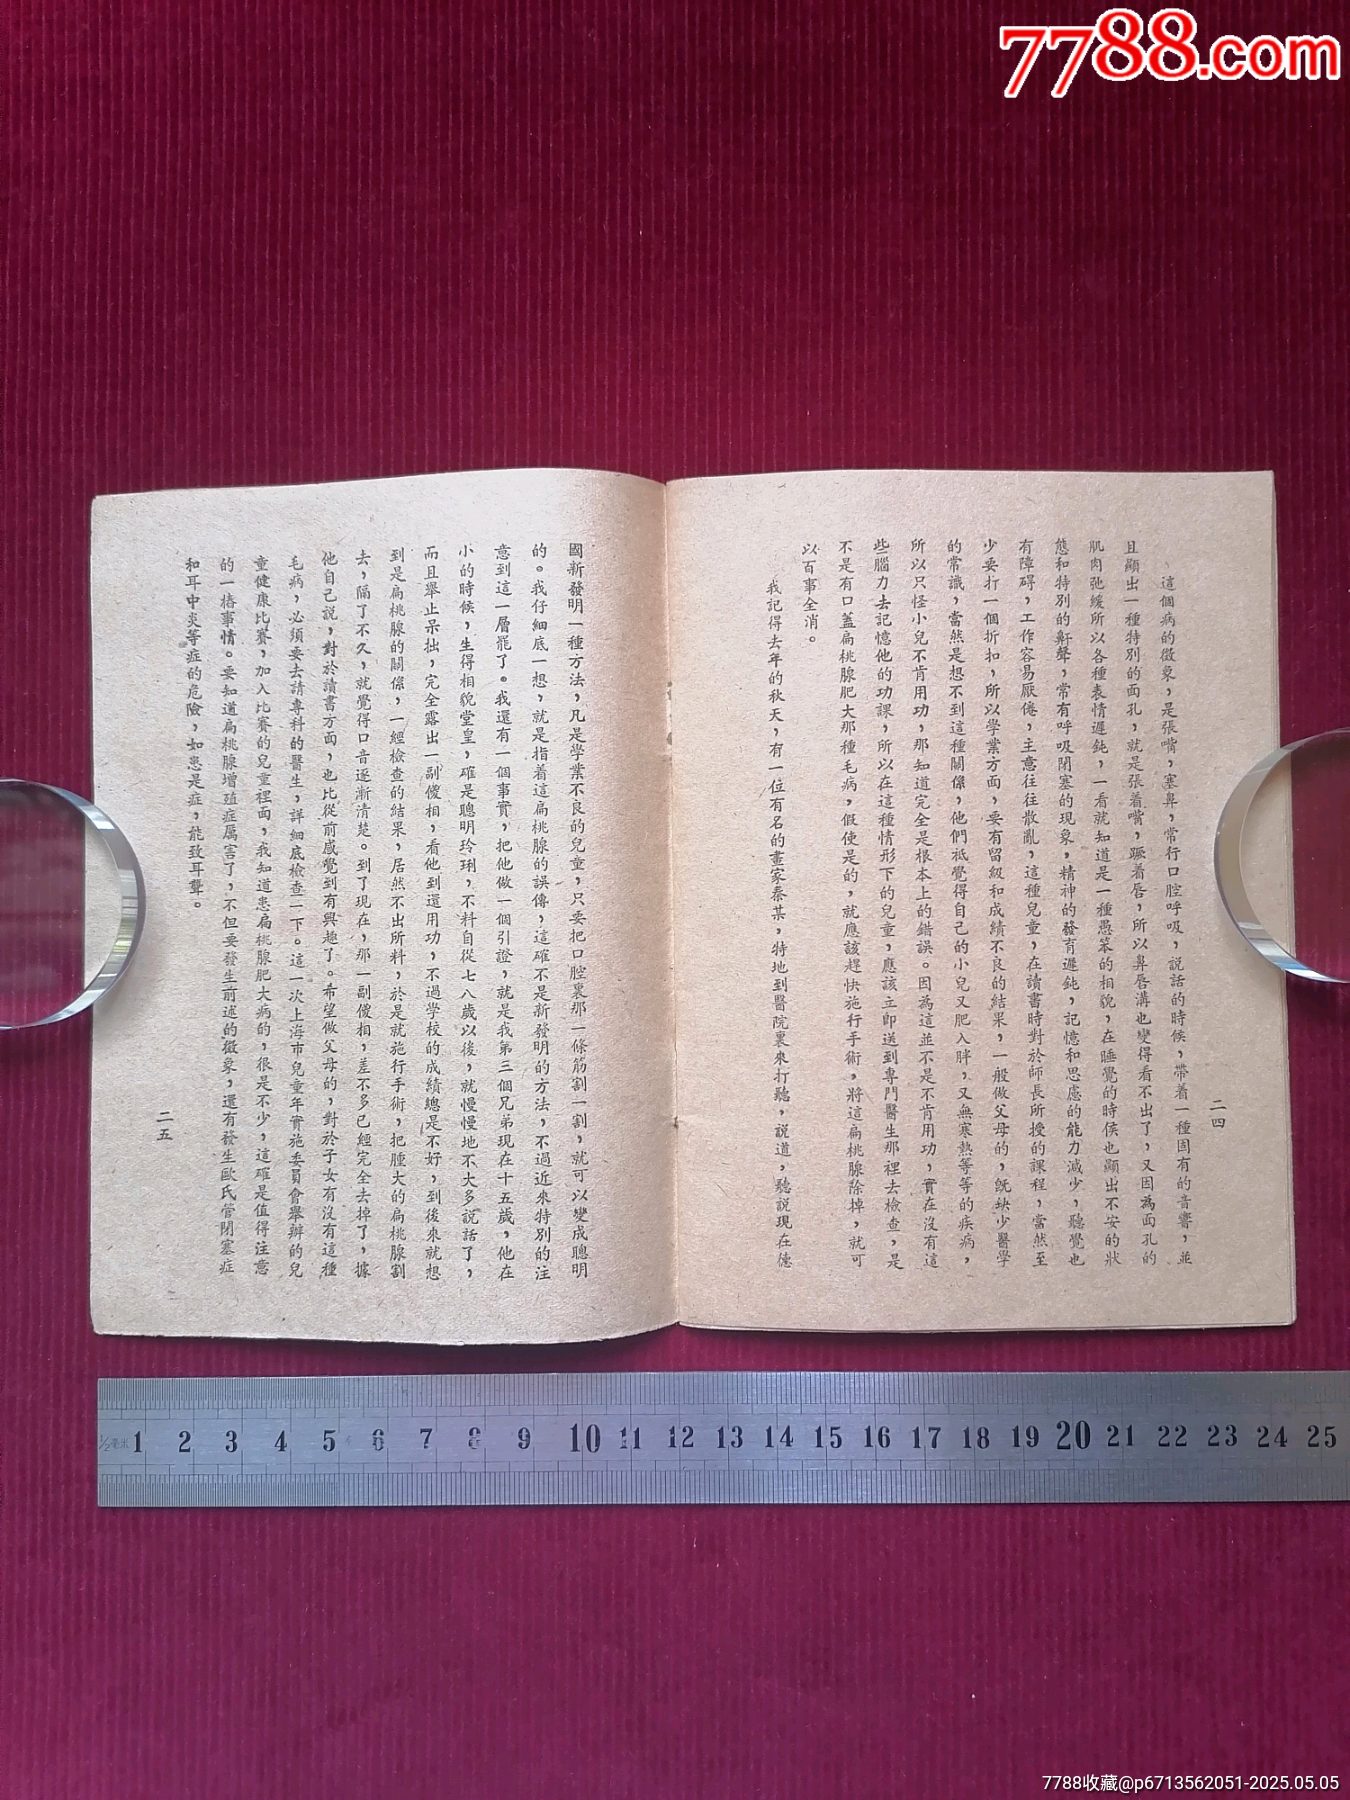 7788.com
二四
這個病的徵象,是張嘴,塞鼻,常行口腔呼吸,説話的時候,帶着一種固有的音響,並
且顯出一種特別的面孔,就是張着嘴,蹶着唇,所以鼻唇溝也變得看不出了,又因為面孔的
肌肉弛緩所以各種表情遲鈍,一看就知道是一種愚笨的相貌,在睡覺的時候也顯出不安的狀
態和特別的鼾聲,常有呼吸閉塞的現象,精神的發育遲鈍,記憶和思慮的能力減少,聽覺也
有障碍,工作容易厭倦,主意往往散亂,這種兒童,在讀書時對於師長所授的課程,當然至
少要打一個折扣,所以學業方面,要有留級和成績不良的結果,一般做父母的,旣缺少醫學
的常識,當然是想不到這種關係,他們祗覺得自己的小兒又肥入胖,又無寒熱等等的疾病,
所以只怪小兒不肯用功,那知道完全是根本上的錯誤。因為這並不是不肯用功,實在沒有這
些腦力去記憶他的功課,所以在這種情形下的兒童,應該立卽送到專門醫生那裡去檢查,是
不是有口蓋扁桃腺肥大那種毛病,假使是的,就應該趕快施行手術,將這扁桃腺除掉,就可
以百事全消。
我記得去年的秋天,有一位有名的畫家秦某,特地到醫院裏來打聽,説道,聽説現在德
國新發明一種方法,凡是學業不良的兒童,只要把口腔裏那一條筋割一割,就可以變成聰明
的。我仔細底一想,就是指着這扁桃腺的誤傳,這確不是新發明的方法,不過近來特別的注
意到這一層罷了。我還有一個事實,把他做一個引證,就是我第三個兄弟現在十五歲,他在
小的時候,生得相貌堂皇,確是聰明玲琍,不料自從七八歲以後,就慢慢地不大多説話了,
而且舉止呆拙,完全露出一副儍相,看他到還用功,不過學校的成績總是不好,到後來就想
到是扁桃腺的關係,一經檢查的結果,居然不出所料,於是就施行手術,把腫大的扁桃腺割
去,隔了不久,就覺得口音逐漸清楚。到了現在,那一副儍相,差不多已經完全去掉了,據
他自己説,對於讀書方面,也比從前感覺到有興趣了。希望做父母的,對於子女有沒有這種
毛病,必須要去請專科的醫生,詳細底檢查一下。這一次上海市兒童年實施委員會舉辦的兒
童健康比賽,加入比賽的兒童裡面,我知道患扁桃腺肥大病的,很是不少,這確是值得注意
的一樁事情。要知道扁桃腺增殖症厲害了,不但要發生前述的徵象,還有發生歐氏管閉塞症
和耳中炎等症的危險,如患是症,能致耳聾。
二五
1/2毫米 1 2 3 4 5 6 7 8 9 10 11 12 13 14 15 16 17 18 19 20 21 22 23 24 25
7788收藏@p6713562051-2025.05.05